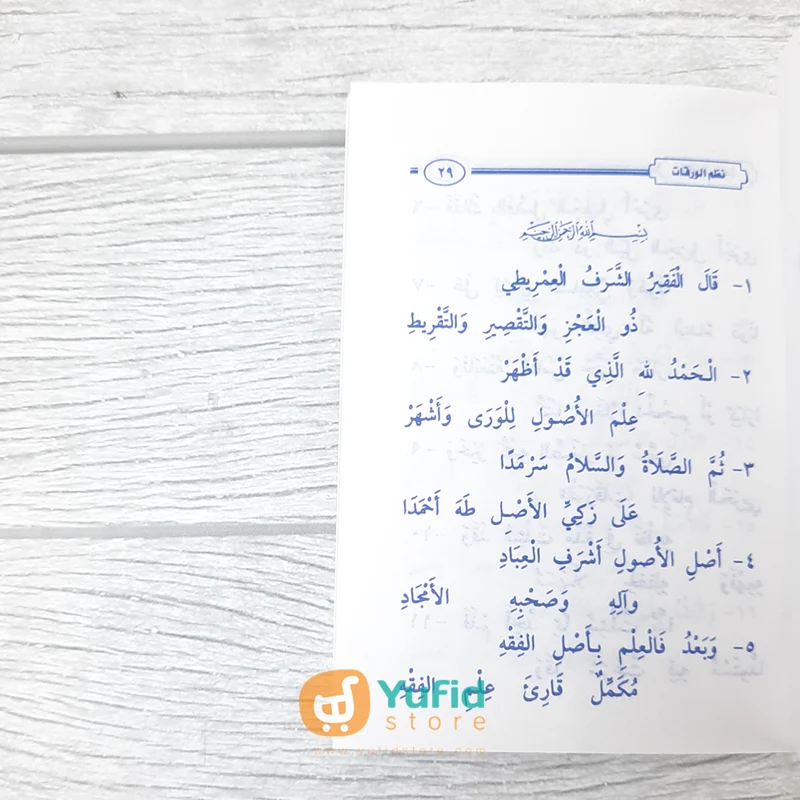 نظم الورقات
٢٩
بِسْمِ اللهِ الرَّحْمٰنِ الرَّحِيْمِ
١- قَالَ الْفَقِيرُ الشَّرَفُ الْعِمْرِيطِي
ذُو الْعَجْزِ وَالتَّقْصِيرِ وَالتَّفْرِيطِ
٢- الْحَمْدُ للهِ الَّذِي قَدْ أَظْهَرْ
عِلْمَ الأُصُولِ لِلْوَرَى وَأَشْهَرْ
٣- ثُمَّ الصَّلَاةُ وَالسَّلامُ سَرْمَدًا
عَلَى زَكِيِّ الأَصْل طَهَ أَحْمَدَا
٤- أَصْلِ الأُصولِ أَشْرَفِ الْعِبَادِ
وآلِهِ وَصَحْبِهِ الأَمْجَادِ
٥- وَبَعْدُ فَالْعِلْمِ بِأَصْلِ الفِقْهِ
مُكَمِّلٌ قَارِئَ عِلْمِ الفِقْهِ
YuFid
store
www.yufidstore.com